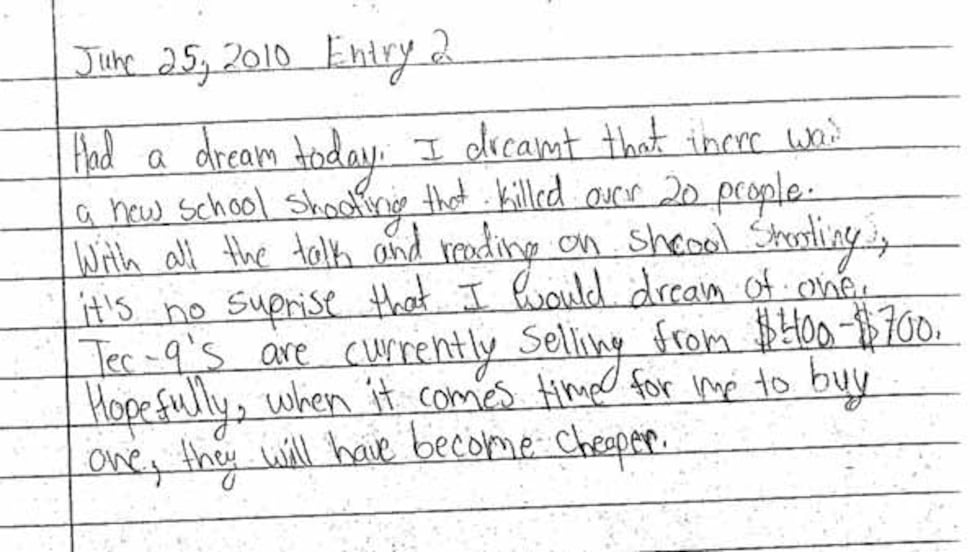 June 25, 2010 Entry 2
Had a dream today. I dreamt that there was
a new school shooting that killed over 20 people.
With all the talk and reading on shcool shooting,
it's no suprise that I would dream of one.
Tec-9's are currently selling from $400-$700.
Hopefully, when it comes time for me to buy
one, they will have become cheaper.